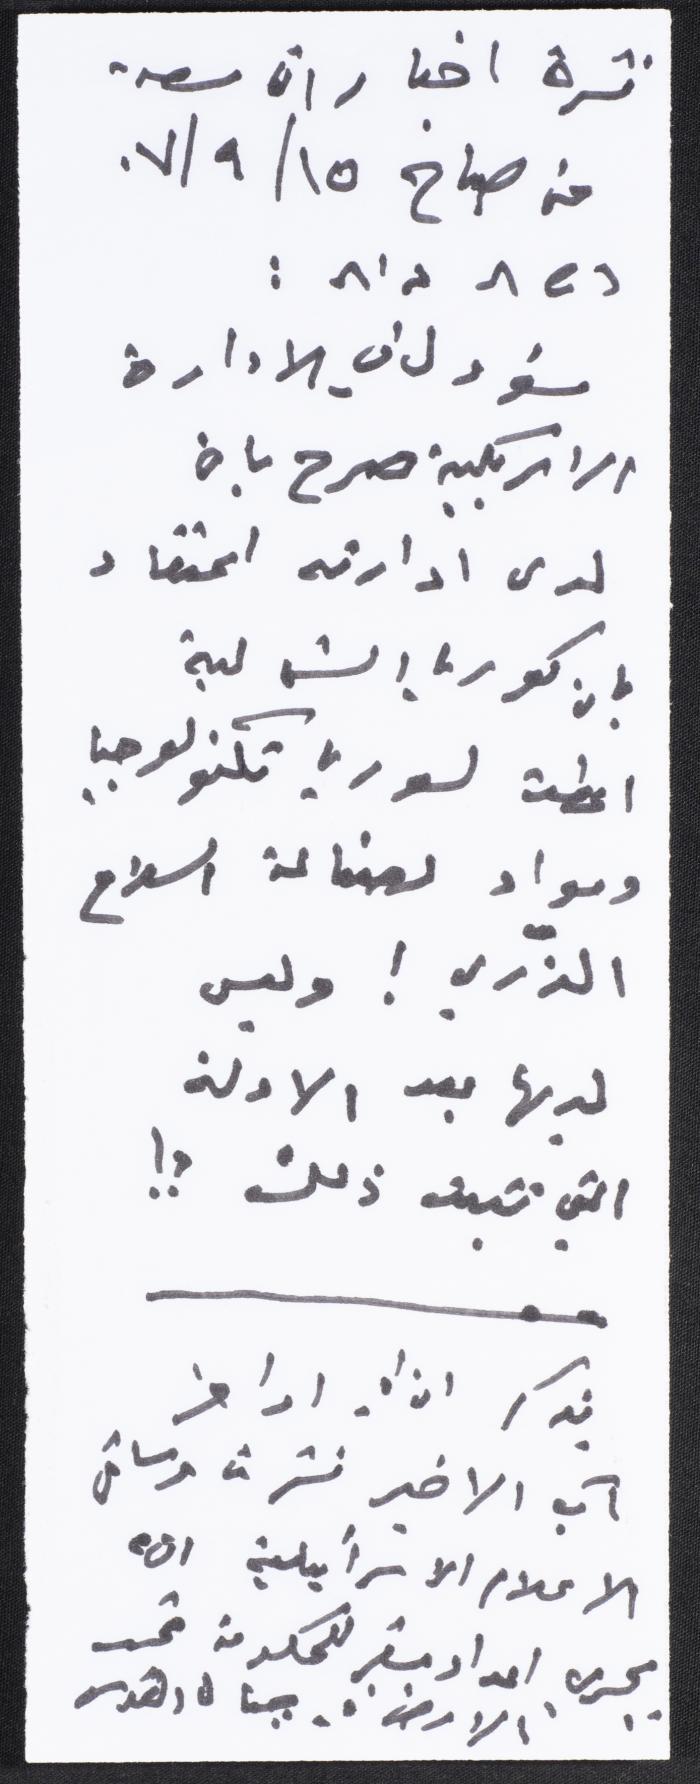 نشرة اخبار الساعة
من صباح ١٥/٩/٠٧
:
مسؤول في الادارة
الامريكية صرح بان
لدى ادارته اعتقاد
بان كوريا الشمالية
اعطت لسوريا تكنولوجيا
ومواد لصناعة السلاح
الذّري ! وليس
لديها بعد الادلة
التي تثبت ذلك ؟!
يذكر انه في اواخر
آب الاخير نشرت وسائل
الاعلام الاسرائيلية انه
يجري اعداد مقر للحكومة تحت
الارض في جبال القدس